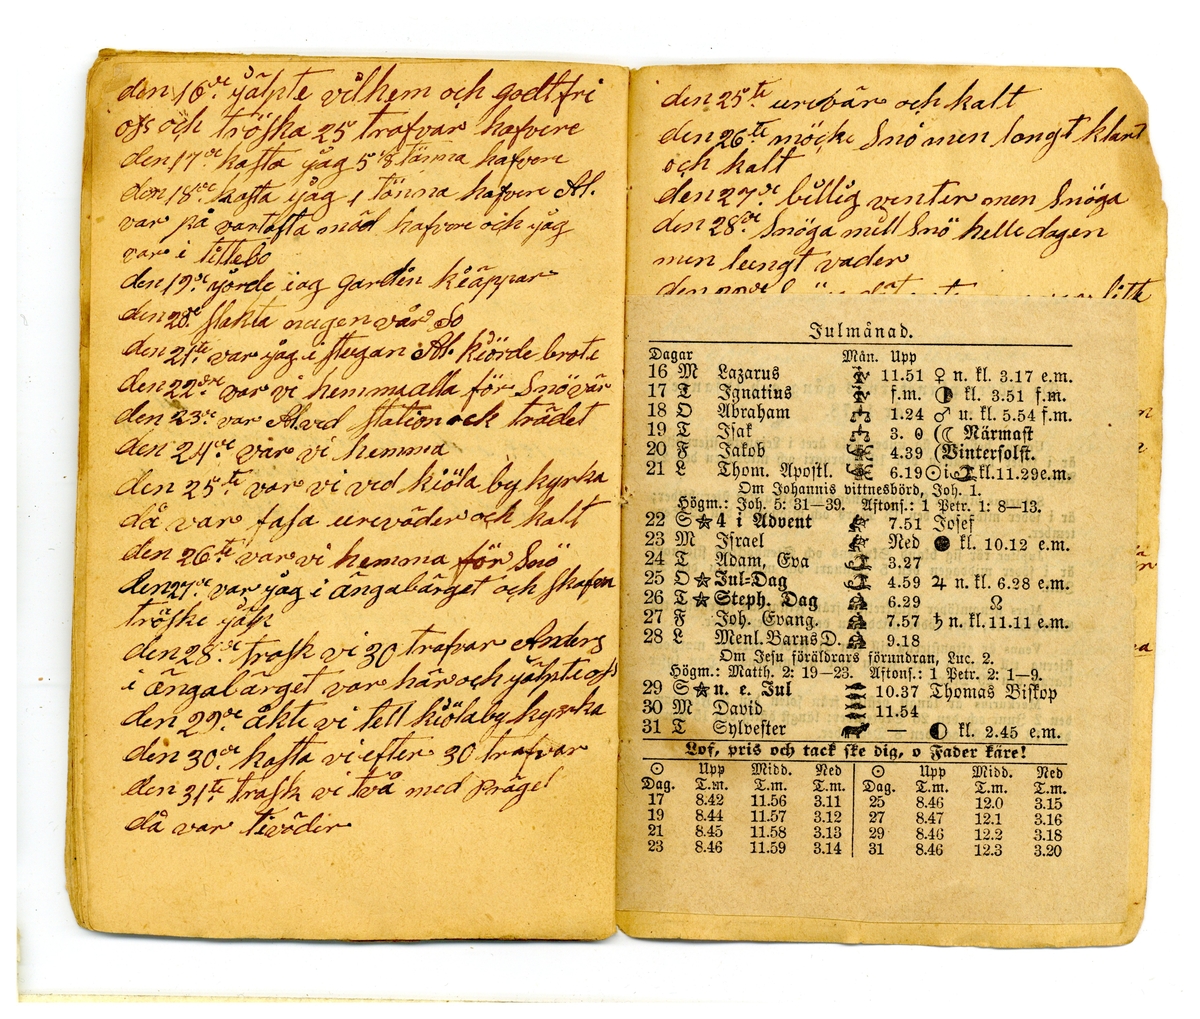 den 16de yälpte vilhem och godtfri
oss och tröska 25 trafvar hafvere
den 17de kasta yåg 5 1/8 tönna hafvere
den 18de kasta yåg 1 tönna hafvere Al.
var på vartofta med hafvere och yåg
var i littebo
den 19de yörde iag garden kiäppar
den 20de slakta nagen vår so
den 21te var yåg i stugan Al. kiörde brote
den 22dre var vi hemma alla för Snövär
den 23de var Al. ved station ock trådet
den 24de var vi hemma
den 25te var vi ved kiöla by kyrka
då var fasa urevöder och kalt
den 26te var vi hemma för Snö
den 27de var yåg i ängabärget och
tröske yälp
den 28de trask vi 30 trafvar Anders
i ängabärget var här och yälpte oss
den 29de åkte vi tell kiölaby kyrka
den 30de kasta vi efter 30 trafvar
den 31te trask vi två med prägel
då var tivöder
den 25te urevär och kalt
den 26te möcke Snö men longt klart
och kalt
den 27de billig venter men Snöga
den 28de Snöga mull Snö helle dagen
men lungt vader
Julmånad.
Dagar Mån. Upp
16 M Lazarus 11.51 ♀ n. kl. 3.17 e.m.
17 T Ignatius f.m. ◑ kl. 3.51 f.m.
18 O Abraham 1.24 ♂ u. kl. 5.54 f.m.
19 T Isak 3. 0 (☾ Närmast
20 F Jakob 4.39 (Vintersolst.
21 L Thom. Apostl. 6.19 ☉ i ♑ kl. 11.29 e.m.
Om Johannis vittnesbörd, Joh. 1.
Högm.: Joh. 5: 31—39. Aftons.: 1 Petr. 1: 8—13.
22 S ★ 4 i Advent 7.51 Josef
23 M Israel Ned ● kl. 10.12 e.m.
24 T Adam, Eva 3.27
25 O ★ Jul-Dag 4.59 ♃ n. kl. 6.28 e.m.
26 T ★ Steph. Dag 6.29 ☊
27 F Joh. Evang. 7.57 ♄ n. kl. 11.11 e.m.
28 L Menl. Barns D. 9.18
Om Jesu föräldrars förundran, Luc. 2.
Högm.: Matth. 2: 19—23. Aftons.: 1 Petr. 2: 1—9.
29 S ★ n. e. Jul 10.37 Thomas Biskop
30 M David 11.54
31 T Sylvester — ◐ kl. 2.45 e.m.
Lof, pris och tack ske dig, o Fader käre!
☉ Upp Midd. Ned ☉ Upp Midd. Ned
Dag. T.m. T.m. T.m. Dag. T.m. T.m. T.m.
17 8.42 11.56 3.11 25 8.46 12.0 3.15
19 8.44 11.57 3.12 27 8.47 12.1 3.16
21 8.45 11.58 3.13 29 8.46 12.2 3.18
23 8.46 11.59 3.14 31 8.46 12.3 3.20